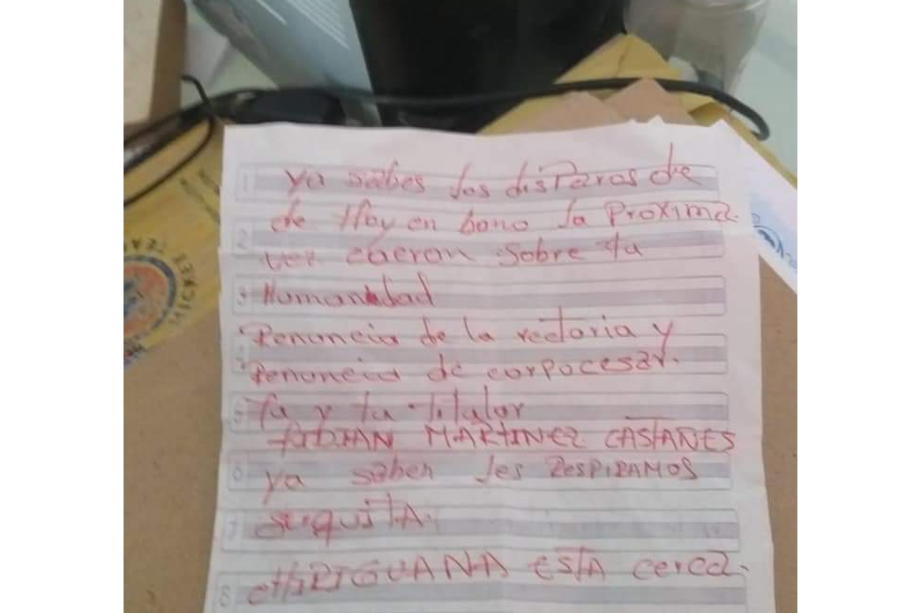 ya sabes los disparos de
de Hoy en bano la Proxima
vez caeran sobre tu
Humanidad
Renuncia de la rectoria y
Renuncia de corpocesar.
Tu y tu titular
FABIAN MARTINEZ CASTAÑES
ya saben les RESPIRAMOS
suquitA.
CHIRIGUANA ESTA cerca.
1
2
3
4
5
6
7
8